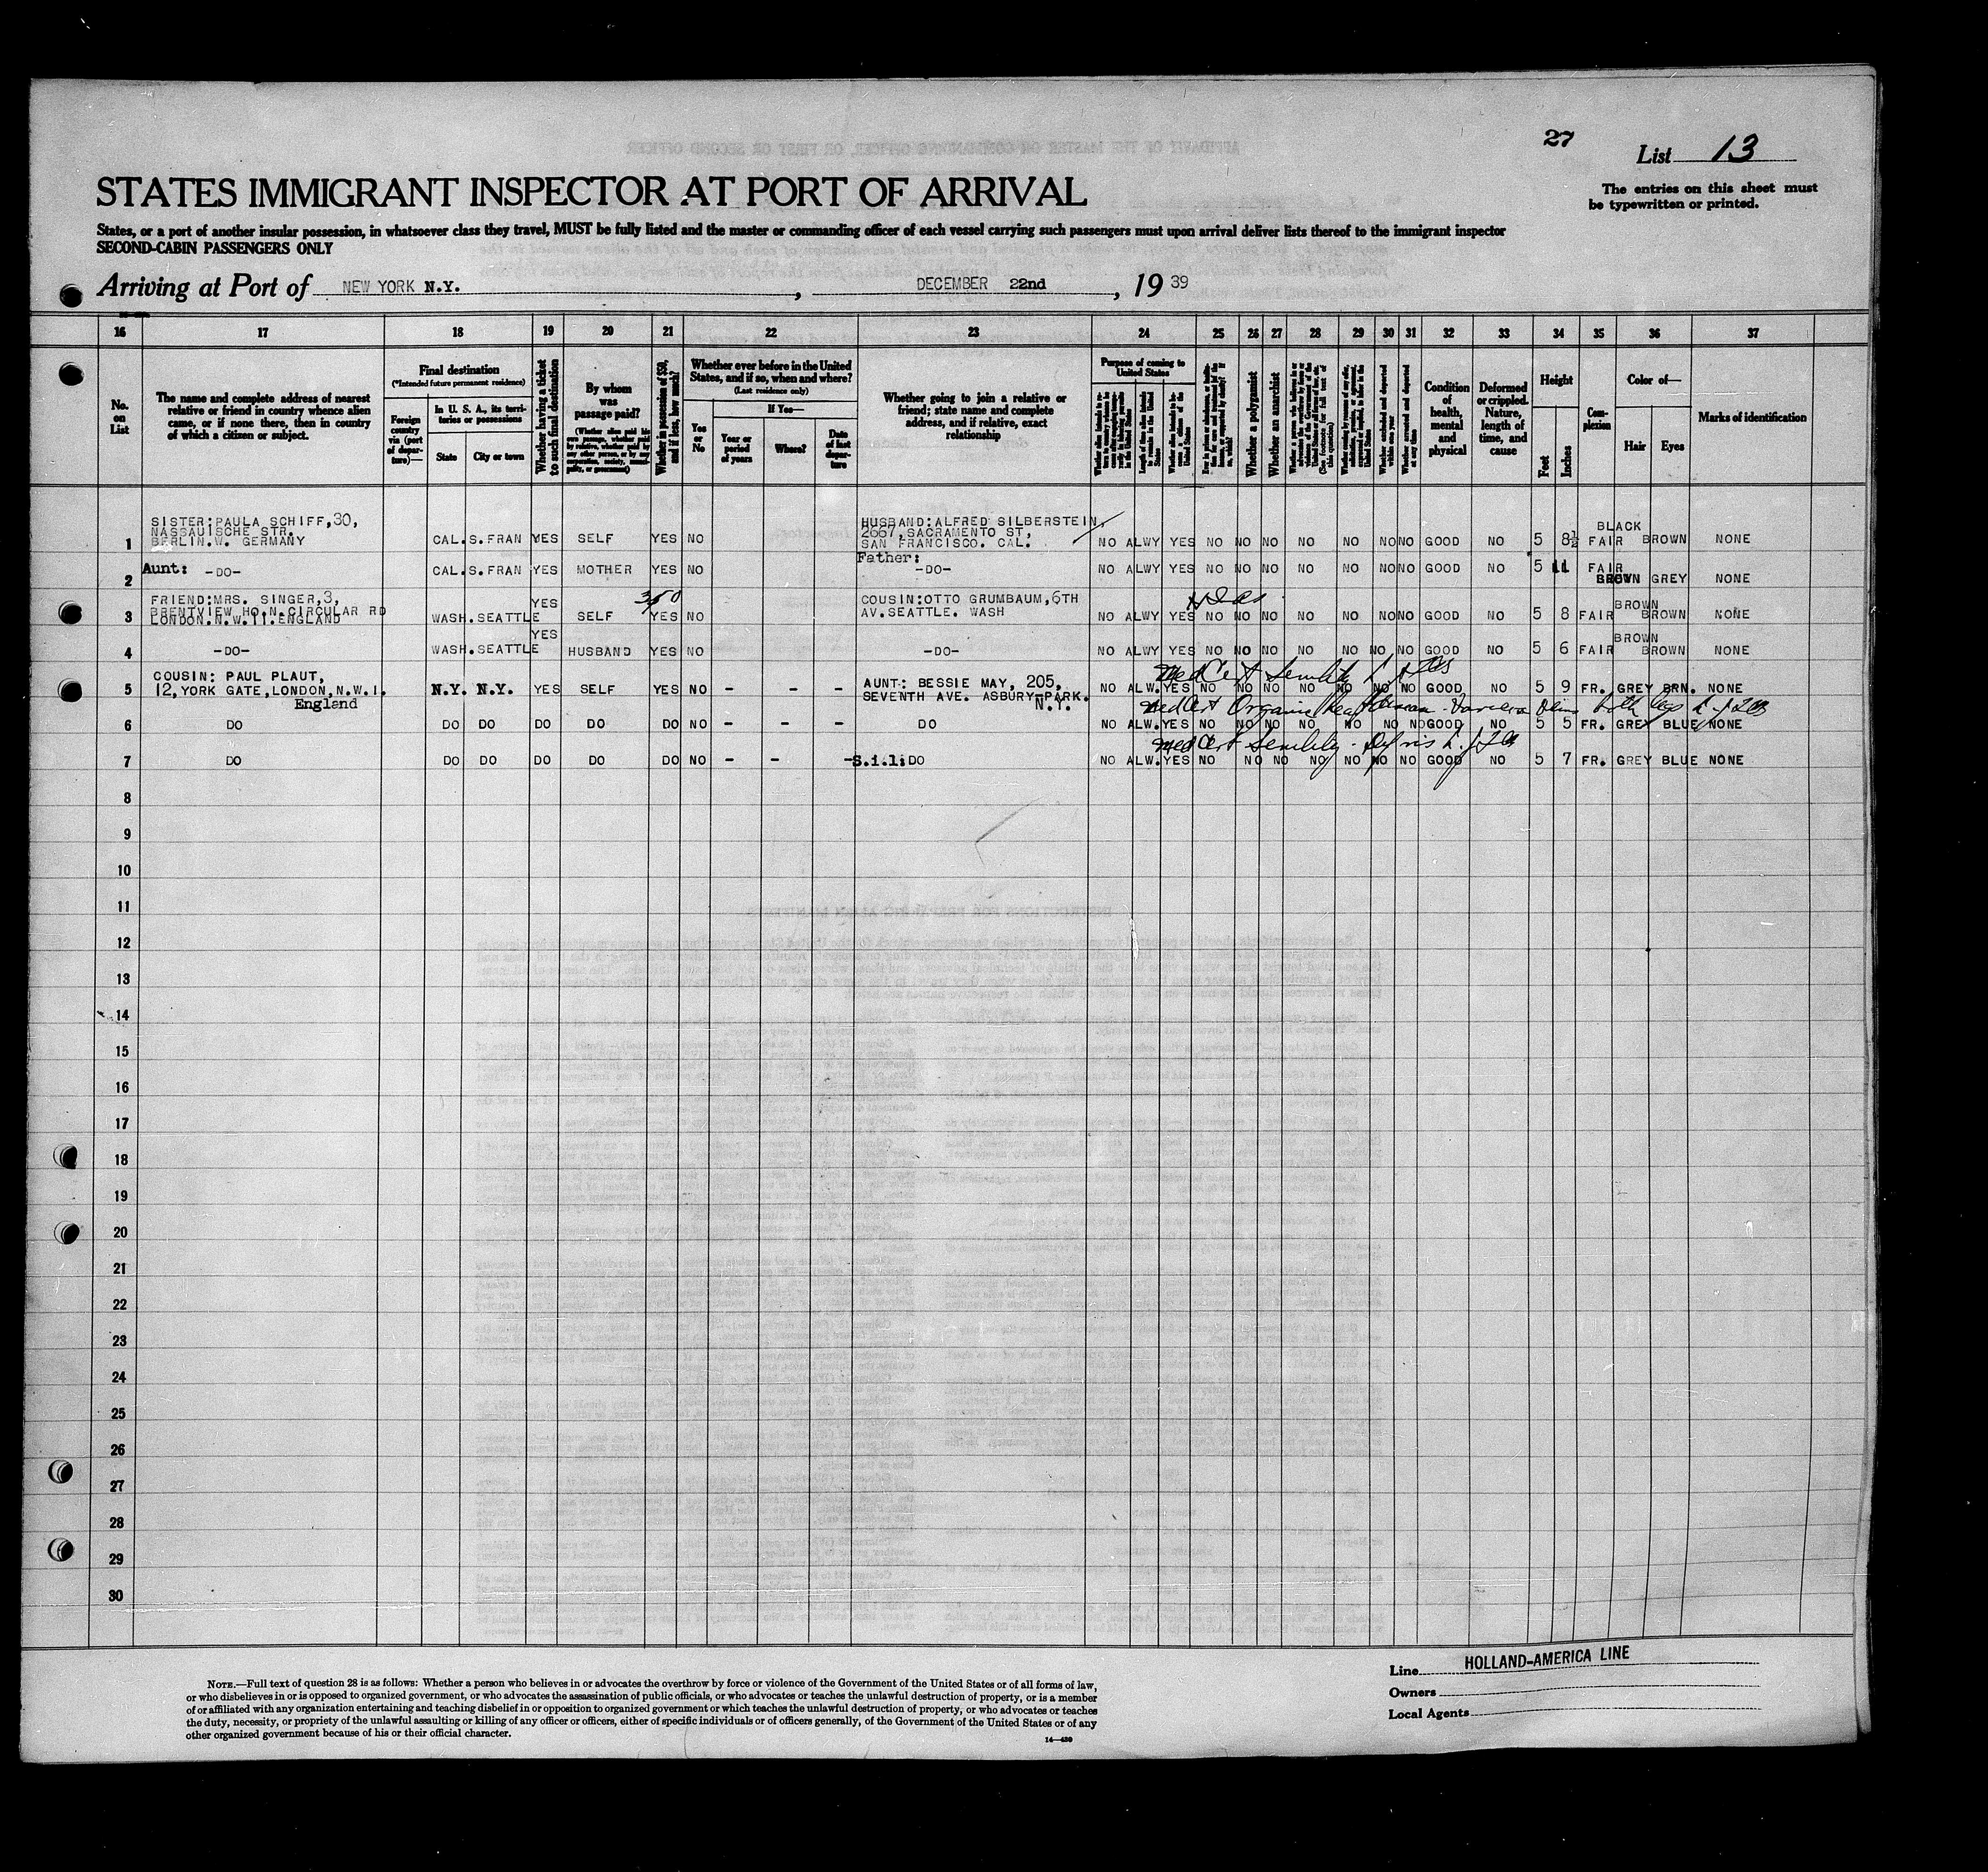 27
List 13
The entries on this sheet must
be typewritten or printed.
STATES IMMIGRANT INSPECTOR AT PORT OF ARRIVAL
States, or a port of another insular possession, in whatsoever class they travel, MUST be fully listed and the master or commanding officer of each vessel carrying such passengers must upon arrival deliver lists thereof to the immigrant inspector
SECOND-CABIN PASSENGERS ONLY
Arriving at Port of NEW YORK N.Y. , DECEMBER 22nd , 19 39
16 17 18 19 20 21 22 23 24 25 26 27 28 29 30 31 32 33 34 35 36 37
No. on List
The name and complete address of nearest
relative or friend in country whence alien
came, or if none there, then in country
of which a citizen or subject.
Final destination
(*Intended future permanent residence)
Foreign country via (port of departure)—
In U. S. A., its territories or possessions
State
City or town
Whether having a ticket to such final destination
By whom was passage paid?
Whether in possession of $50, and if less, how much?
Whether ever before in the United
States, and if so, when and where?
(Last residence only)
Yes or No
If Yes—
Year or period of years
Where?
Date of last departure
Whether going to join a relative or
friend; state name and complete
address, and if relative, exact
relationship
Purpose of coming to
United States
Whether a polygamist
Whether an anarchist
Condition of health, mental and physical
Deformed or crippled. Nature, length of time, and cause
Height
Feet
Inches
Complexion
Color of—
Hair
Eyes
Marks of identification
SISTER:PAULA SCHIFF,30,
NASSAUISCHE STR.
BERLIN.W. GERMANY
HUSBAND:ALFRED SILBERSTEIN,
2667,SACRAMENTO ST,
SAN FRANCISCO. CAL.
1 CAL.S.FRAN YES SELF YES NO NO ALWY YES NO NO NO NO NO NO NO GOOD NO 5 8½ FAIR BLACK BROWN NONE
Aunt: -DO-
Father: -DO-
2 CAL.S.FRAN YES MOTHER YES NO NO ALWY YES NO NO NO NO NO NO NO GOOD NO 5 11 FAIR BROWN GREY NONE
FRIEND:MRS. SINGER,3,
BRENTVIEW HO.N.CIRCULAR RD
LONDON.N.W.11.ENGLAND
COUSIN:OTTO GRUMBAUM,6TH
AV.SEATTLE. WASH
3 WASH.SEATTLE YES SELF 350 YES NO NO ALWY YES NO NO NO NO NO NO NO GOOD NO 5 8 FAIR BROWN BROWN NONE
4 -DO- WASH.SEATTLE YES HUSBAND YES NO -DO- NO ALWY YES NO NO NO NO NO NO NO GOOD NO 5 6 FAIR BROWN BROWN NONE
COUSIN: PAUL PLAUT,
12,YORK GATE,LONDON,N.W.1.
England
AUNT: BESSIE MAY, 205,
SEVENTH AVE. ASBURY-PARK.
N.Y.
Med Cert Senility
5 N.Y. N.Y. YES SELF YES NO - - - NO ALW. YES NO NO NO NO NO NO NO GOOD NO 5 9 FR. GREY BRN. NONE
Med Cert Organic heart both legs
6 DO DO DO DO DO DO NO - - - DO NO ALW. YES NO NO NO NO NO NO NO GOOD NO 5 5 FR. GREY BLUE NONE
Med Cert Senility
7 DO DO DO DO DO DO NO - - - S.i.l: DO NO ALW. YES NO NO NO NO NO NO NO GOOD NO 5 7 FR. GREY BLUE NONE
8
9
10
11
12
13
14
15
16
17
18
19
20
21
22
23
24
25
26
27
28
29
30
NOTE.—Full text of question 28 is as follows: Whether a person who believes in or advocates the overthrow by force or violence of the Government of the United States or of all forms of law,
or who disbelieves in or is opposed to organized government, or who advocates the assassination of public officials, or who advocates or teaches the unlawful destruction of property, or is a member
of or affiliated with any organization entertaining and teaching disbelief in or opposition to organized government or which teaches the unlawful destruction of property, or who advocates or teaches
the duty, necessity, or propriety of the unlawful assaulting or killing of any officer or officers, either of specific individuals or of officers generally, of the Government of the United States or of any
other organized government because of his or their official character.
14—430
Line HOLLAND-AMERICA LINE
Owners
Local Agents